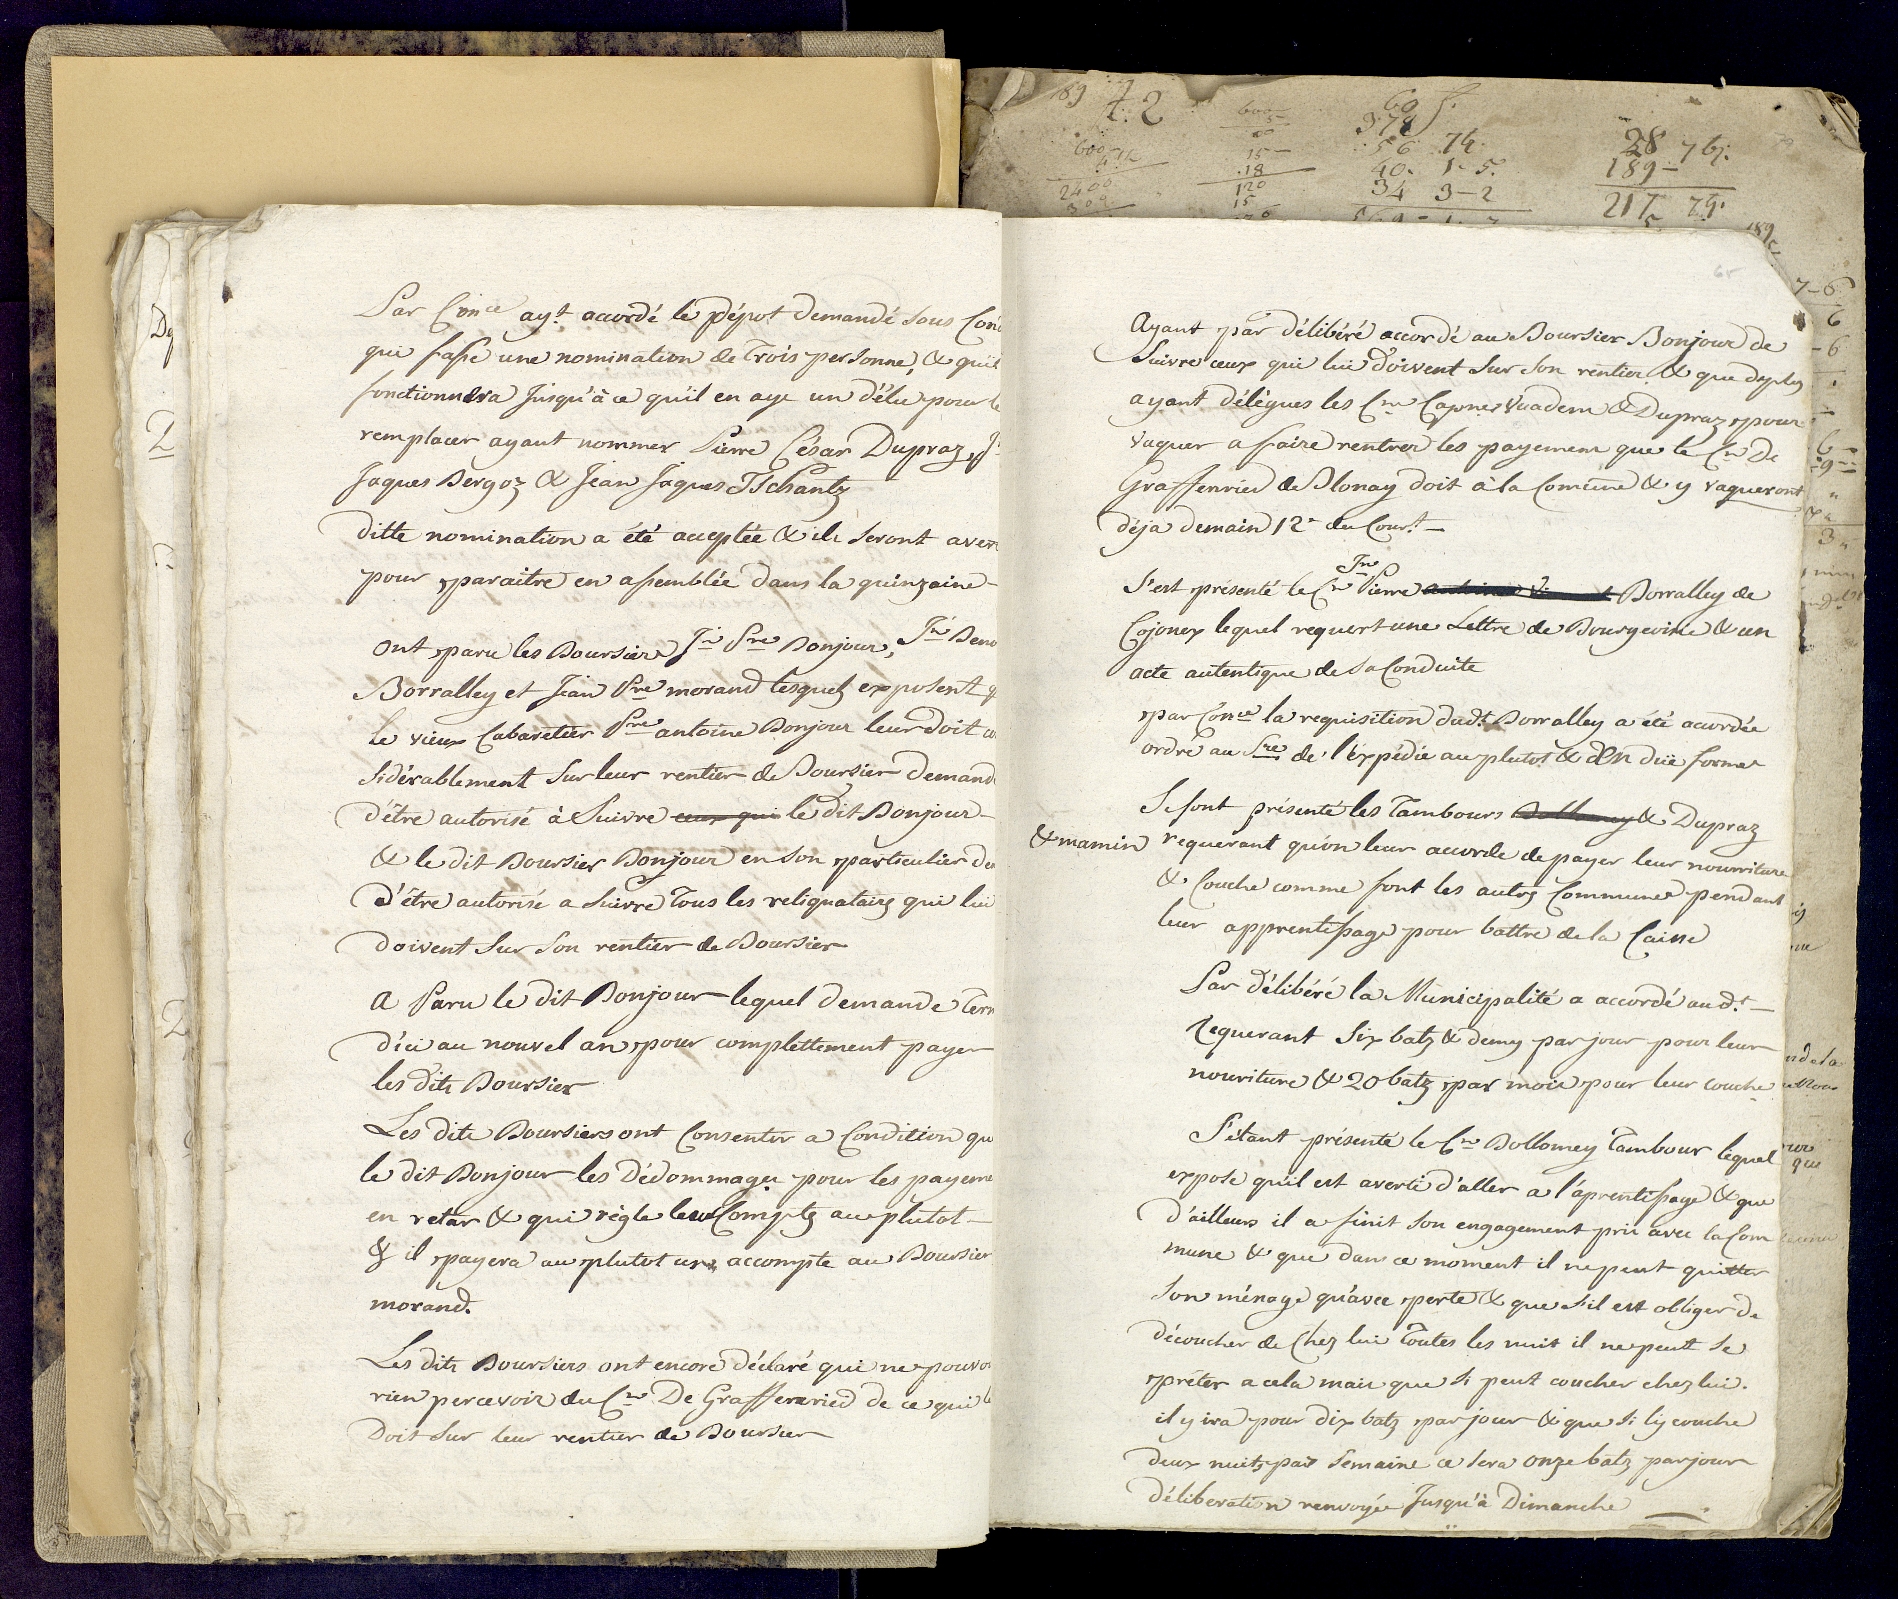 Par Con.ce ay.t accordé le dépot demandé sous Con
qui fasse une nomination de trois personne, & quil
fonctionnera Jusqu'à ce qu'il en aye un d'élu pour le
remplacer ayant nommer Pierre César Dupraz, J.
Jaques Bergoz & Jean Jaques Tschantz
ditte nomination a été acceptée & ils seront aver
pour paraitre en assemblée dans la quinzaine
ont paru les Boursier J.n P.re Bonjour, J.n Beno
Borralley et Jean P.re morand lesquels exposent q
le vieux Cabaretier P.re antoine Bonjour leur doit co
sidérablement sur leur rentier de Boursier demande
d'être autorisé à Suivre ceux qui le dit Bonjour
& le dit Boursier Bonjour en son particulier de
d'être autorisé a Suivre tous les reliquataires qui lui
doivent sur son rentier de Boursier
A Paru le dit Bonjour lequel demande term
d'ici au nouvel an pour complettement payer
les dits Boursier
Les dits Boursiers ont Consentir a Condition qu
le dit Bonjour les Dédommage pour les payeme
en retar & qui règle leur Compte au plutot
& il payera au plutot un accompte au Boursier
morand.
Les dits Boursiers ont encore déclaré qui ne pouvoi
rien percevoir du C.n De Graffenried de ce qui
doit sur leur rentier de Boursier
Ayant par délibéré accordé au Boursier Bonjour de
Suivre ceux qui lui doivent sur son rentier & que deplus
ayant délégues les C.ns Vuadem & Dupraz pour
vaquer a faire rentrer les payement que le C.n De
Graffenried de Blonay doit à la Comune & y vaqueront
déja demain 12.e du Cour.t
J.n
S'est présenté le C.n Pierre Borralley de
Cojonex lequel requert une Lettre de Bourgeoisie & un
acte autentique de sa Conduite
par Con.ce la requisition dud.t Borralley a été accordée
ordre au S.re de l'expédié au plutot & en düe forme
Se sont présenté les Tambours Dollomey & Dupraz
& mamin requerant qu'on leur accorde de payer leur nourriture
& Couche comme font les autres Communes pendant
leur apprentissage pour battre de la Caisse
Par délibéré la Municipalité a accordé aud.t
requerant Six batz & demy par jour pour leur
nouriture & 20 batz par mois pour leur couche
S'étant présenté le C.n Dollomey Tambour lequel
expose qu'il est averti d'aller a l'aprentissage & que
d'ailleurs il a finit son engagement pris avec la Com
mune & que dans ce moment il ne peut quitter
Son ménage qu'avec perte & que s'il est obliger de
découcher de Chez lui toutes les nuit il ne peut se
prêter a cela mais que si peut coucher chez lui.
il y ira pour dix batz par jour & que si l'y couche
deux nuits par semaine ce sera onze batz par jour
déliberation renvoyée Jusqu'à Dimanche